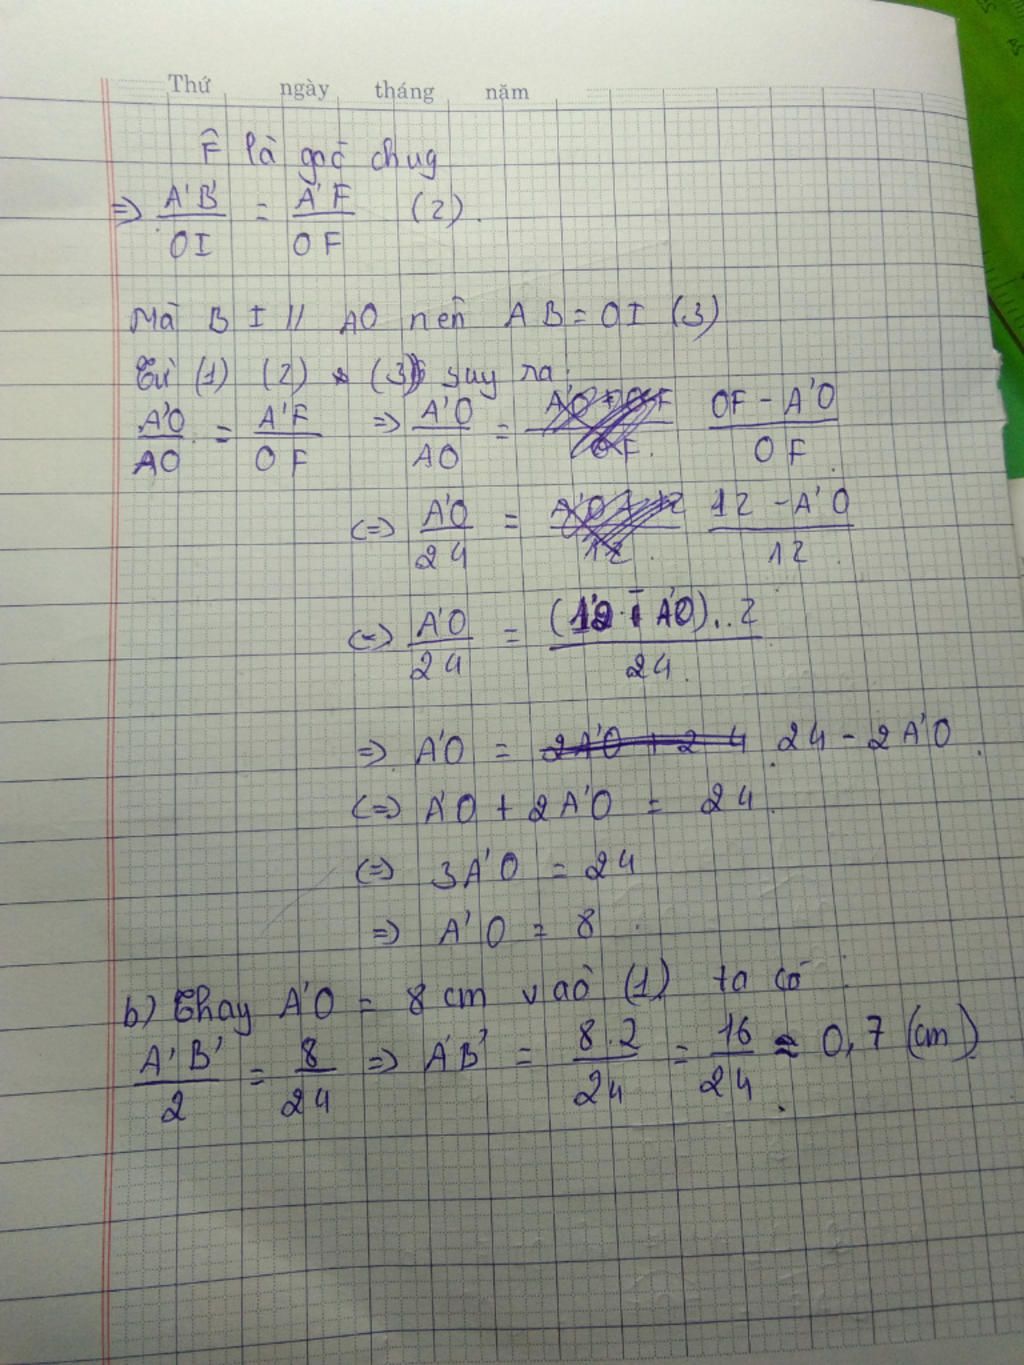 Thứ ngày tháng năm
F̂ là góc chug
=> A'B'/OI = A'F/OF (2).
Mà BI // AO nên AB = OI (3)
Từ (1) (2) (3) suy ra:
A'O/AO = A'F/OF => A'O/AO = (OF - A'O)/OF
<=> A'O/24 = (12 - A'O)/12
<=> A'O/24 = (12 - A'O)..2/24
=> A'O = 24 - 2A'O
<=> A'O + 2A'O = 24
<=> 3A'O = 24
=> A'O = 8
b) Thay A'O = 8 cm vào (1) ta có:
A'B'/2 = 8/24 => A'B' = 8.2/24 = 16/24 ≈ 0,7 (cm)